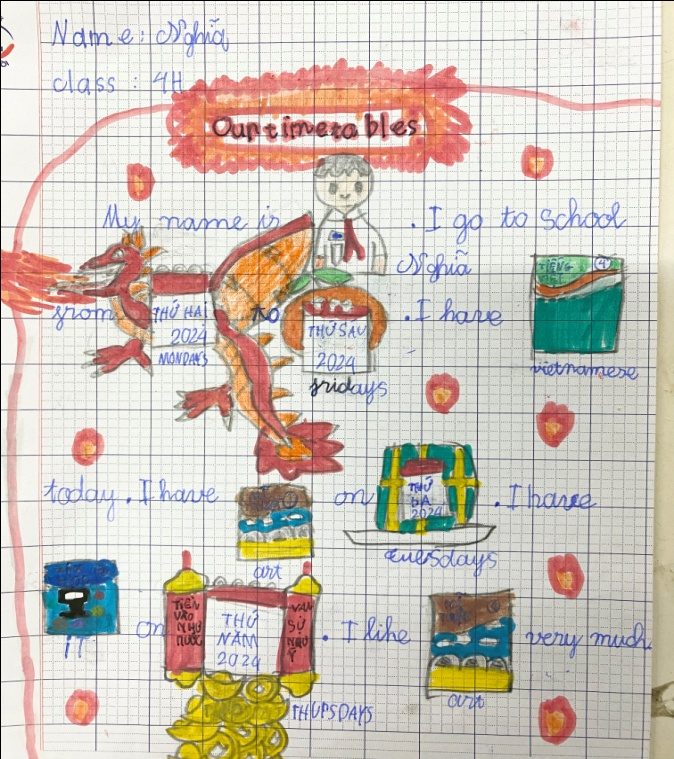 Name: Nghĩa
class: 4H
Our timetables
My name is
Nghĩa
. I go to school
from
THỨ HAI
2024
MONDAYS
to
THỨ SÁU
2024
fridays
. I have
TIẾNG VIỆT
4
vietnamese
today. I have
art
on
THỨ
BA
2024
tuesdays
. I have
IT
on
TIỀN
VÀO
NHƯ
NƯỚC
THỨ
NĂM
2024
VẠN
SỰ
NHƯ
Ý
THUPSDAYS
. I like
art
very much.